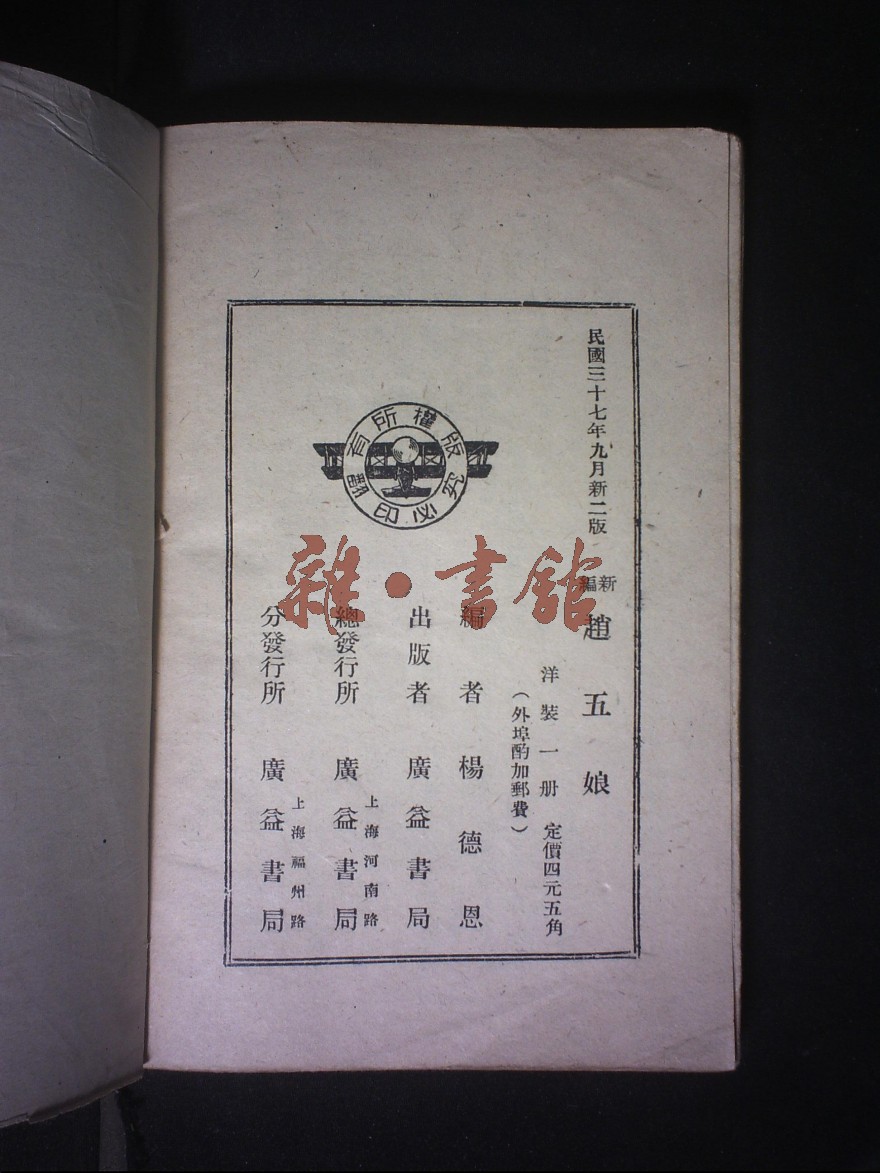 民國三十七年九月新二版
新編
趙五娘
洋裝一册 定價四元五角
（外埠酌加郵費）
編者 楊德恩
出版者 廣益書局
總發行所 上海河南路 廣益書局
分發行所 上海福州路 廣益書局
版權所有
翻印必究
雜·書館